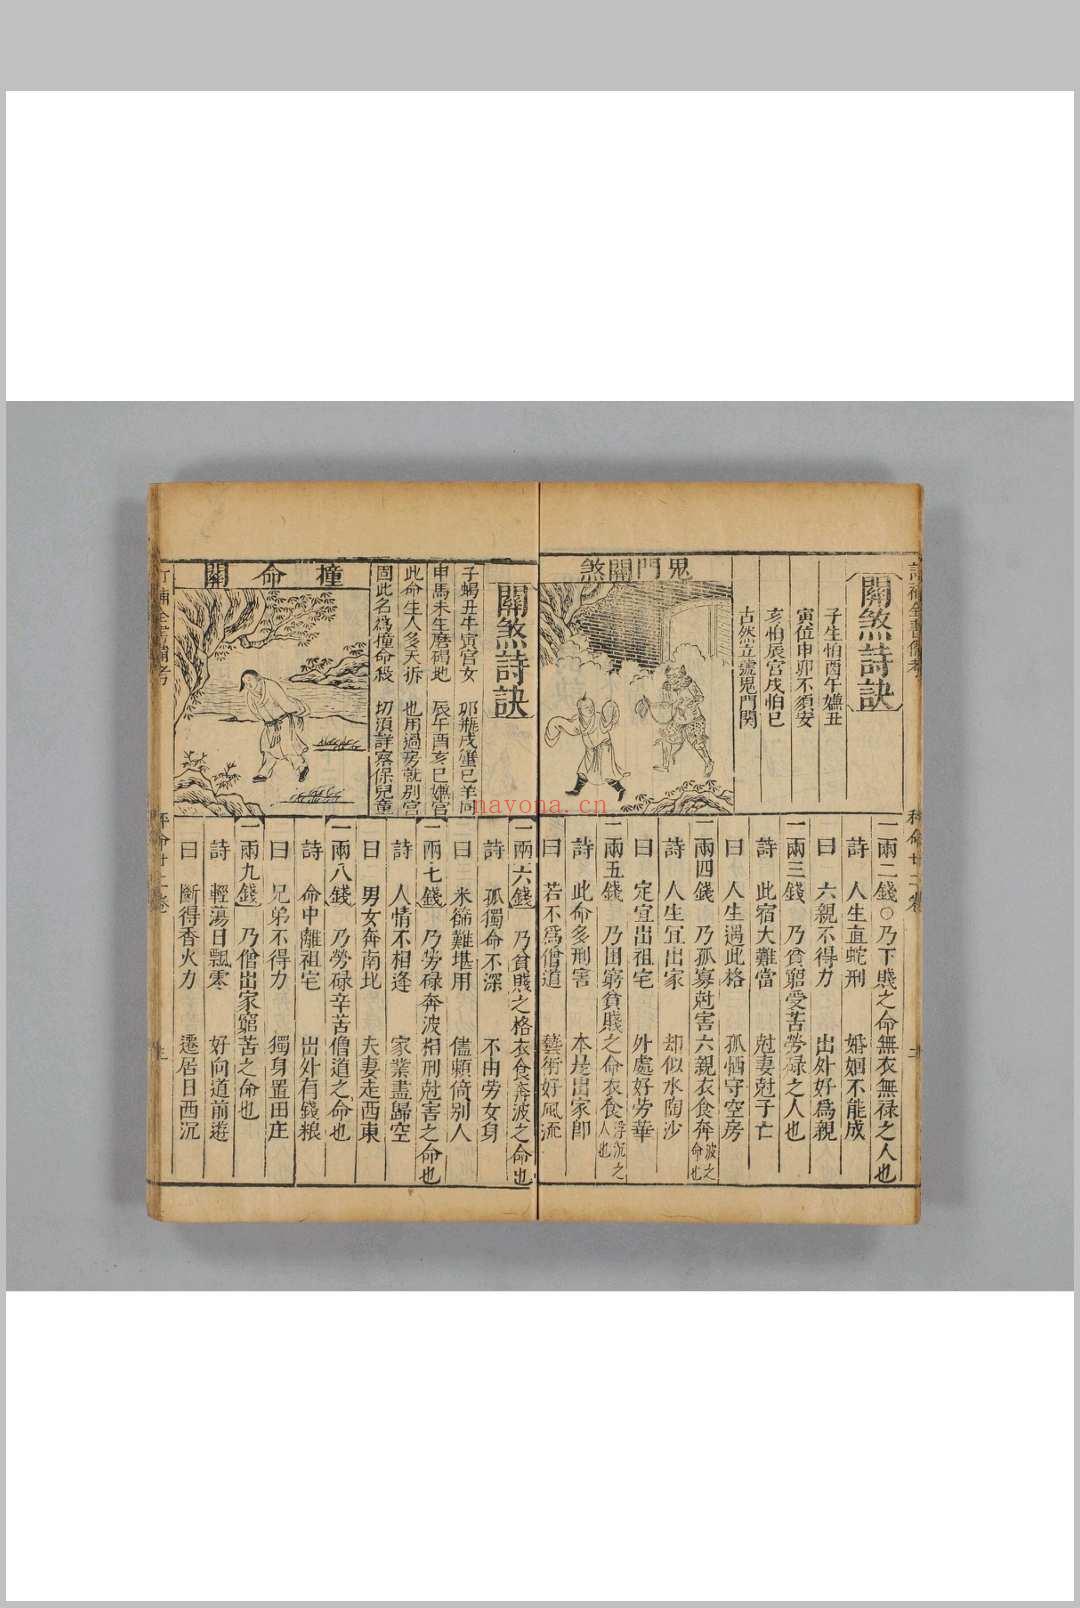 關煞詩訣
子生怕酉午嫌丑
寅位申卯不須安
亥怕辰宮戌怕巳
古然立號鬼門関
鬼門關煞
一兩二錢○乃下賤之命無衣無禄之人也
詩 人生直蛇刑 婚姻不能成
曰 六親不得力 出外好爲親
一兩三錢 乃貧窮受苦勞碌之人也
詩 此宿大難當 尅妻尅子亡
曰 人生遇此格 孤恓守空房
一兩四錢 乃孤寡尅害六親衣食奔波之命也
詩 人生宜出家 却似水陶沙
曰 定宜出祖宅 外處好勞華
一兩五錢 乃困窮貧賤之命衣食浮沉之人也
詩 此命多刑害 本是出家郎
曰 若不爲僧道 藝術好風流
關煞詩訣
子蝎丑牛寅宮女 卯瓶戌蟹巳羊同
申馬未生磨碣地 辰午酉亥巳嫌宮
此命生人多夭折 也用過房就別宮
因此名爲撞命殺 切須詳察保兒童
撞命關
一兩六錢 乃貧賤之格衣食奔波之命也
詩 孤獨命不深 不由勞女身
曰 米篩難堪用 儘頼倚别人
一兩七錢 乃勞碌奔波相刑尅害之命也
詩 人情不相逢 家業盡歸空
曰 男女奔南北 夫妻走西東
一兩八錢 乃勞碌辛苦僧道之命也
詩 命中離祖宅 出外有錢粮
曰 兄弟不得力 獨身置田庄
一兩九錢 乃僧出家窮苦之命也
詩 輕蕩日飄零 好向道前遊
曰 斷得香火力 遷居日西沉
navona.cn